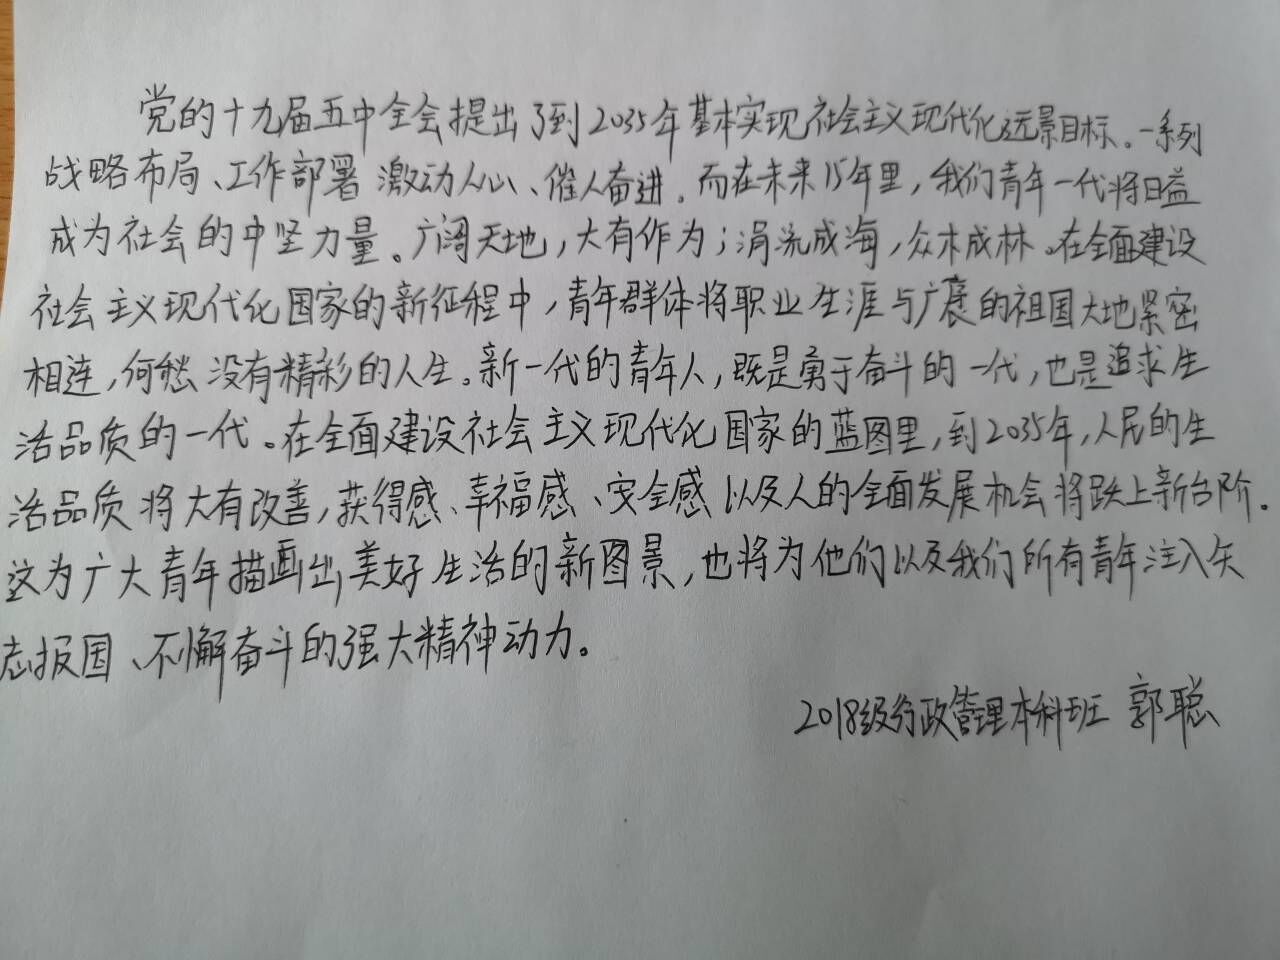 党的十九届五中全会提出了到2035年基本实现社会主义现代化远景目标。一系列
战略布局、工作部署 激动人心、催人奋进。而在未来15年里，我们青年一代将日益
成为社会的中坚力量。广阔天地，大有作为；涓流成海，众木成林。在全面建设
社会主义现代化国家的新征程中，青年群体将职业生涯与广袤的祖国大地紧密
相连，何愁没有精彩的人生。新一代的青年人，既是勇于奋斗的一代，也是追求生
活品质的一代。在全面建设社会主义现代化国家的蓝图里，到2035年，人民的生
活品质将大有改善，获得感、幸福感、安全感以及人的全面发展机会将跃上新台阶。
这为广大青年描画出美好生活的新图景，也将为他们以及我们所有青年注入矢
志报国、不懈奋斗的强大精神动力。
2018级行政管理本科班 郭聪